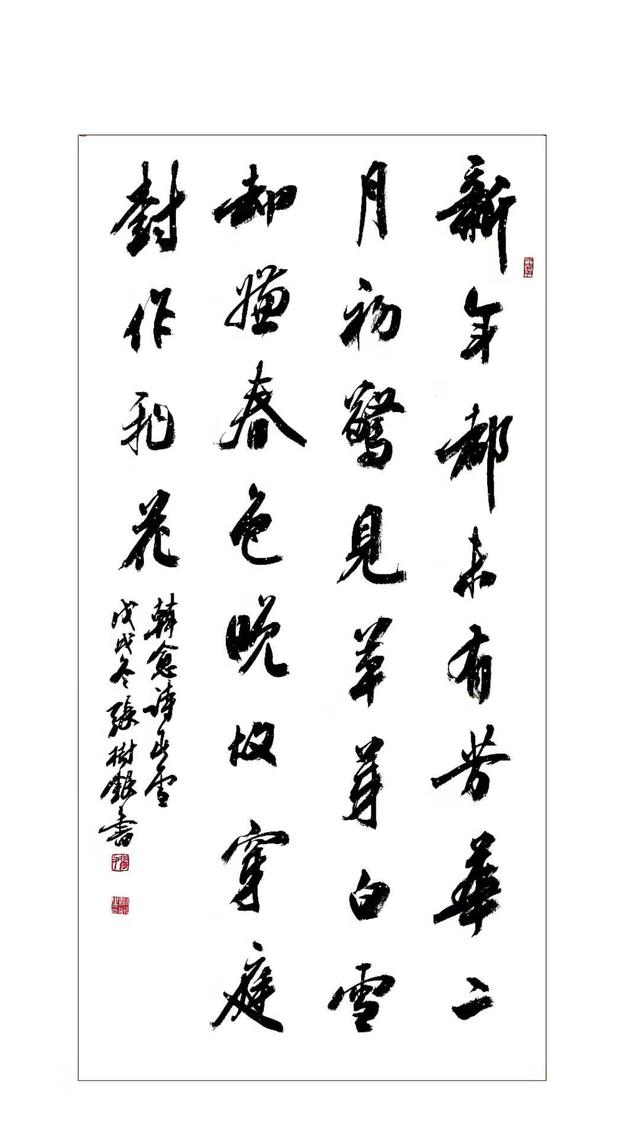 新年都未有芳華二
月初驚見草芽白雪
却嫌春色晚故穿庭
樹作飛花
韓愈詩春雪
戊戌冬張樹銀書